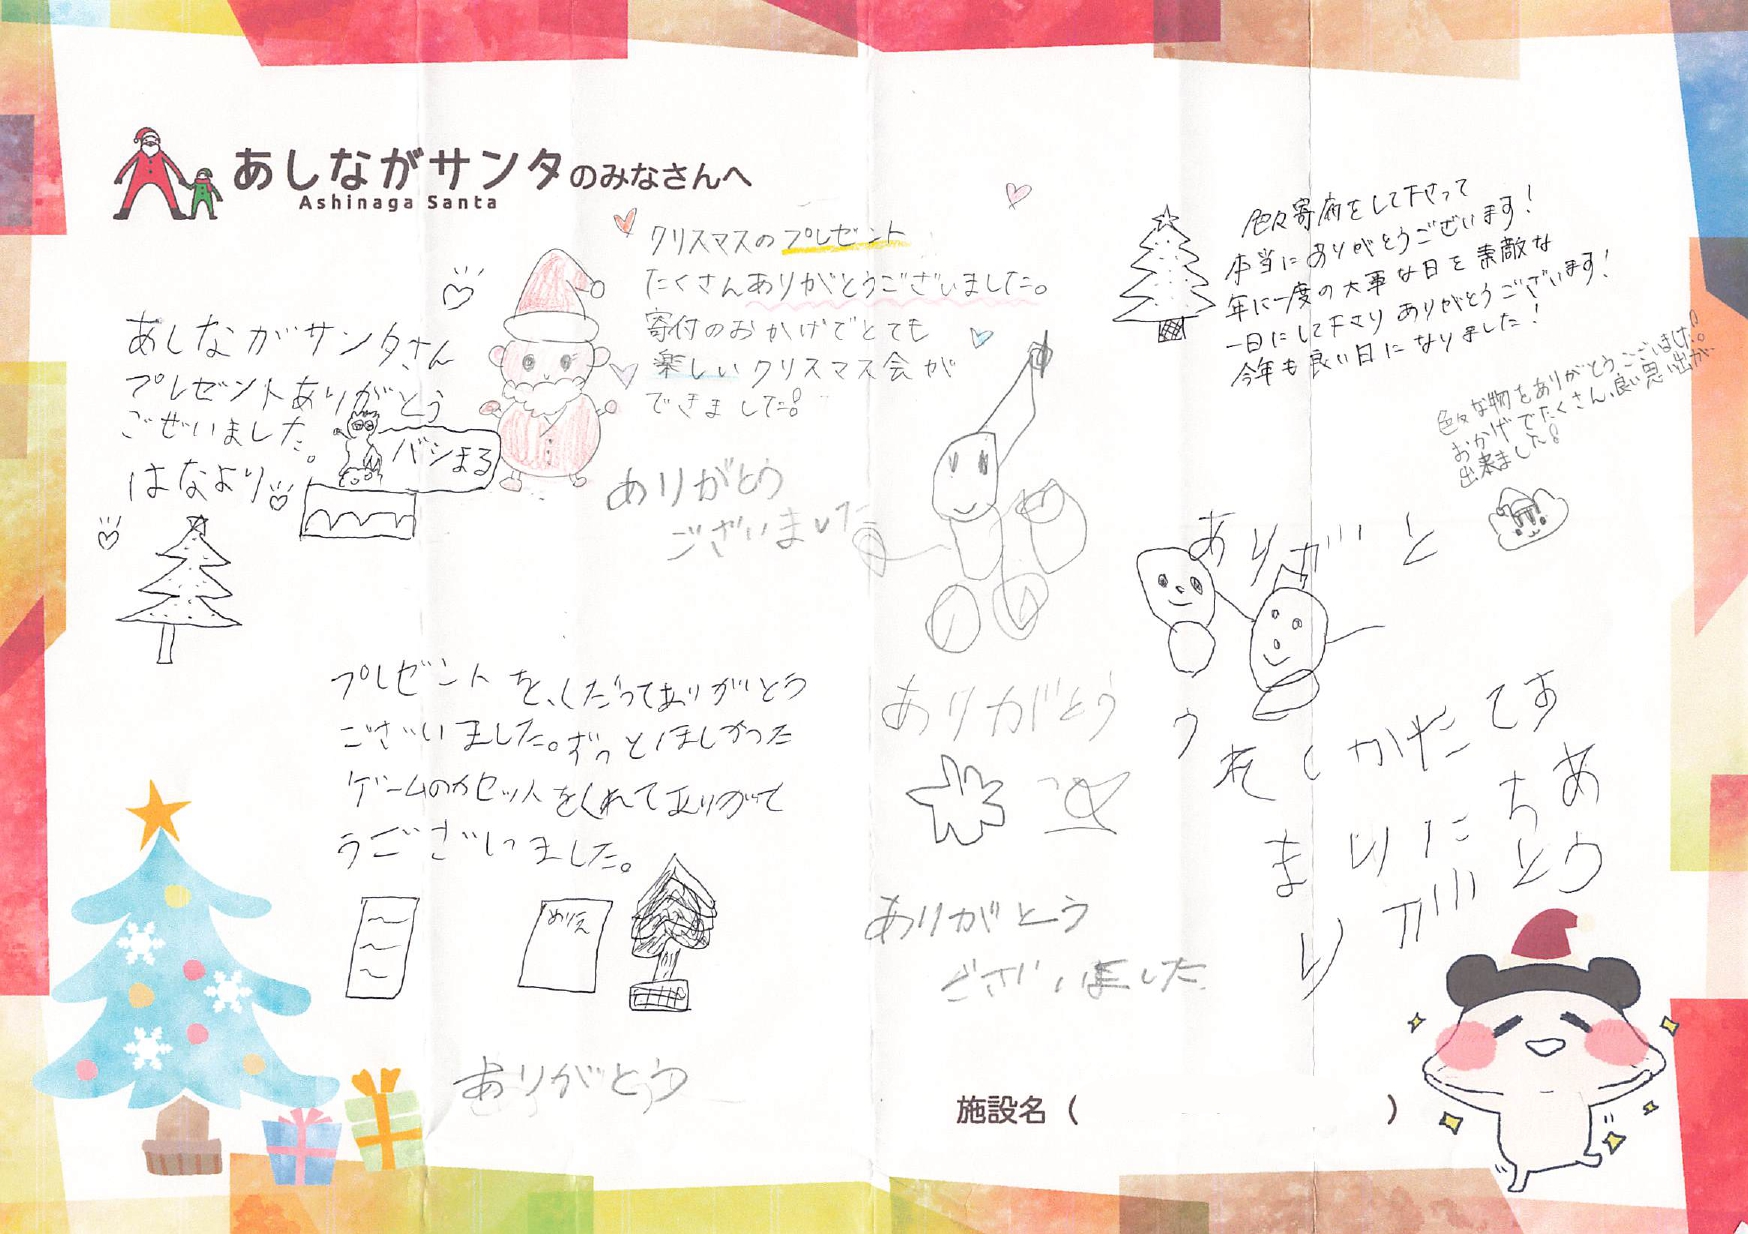 あしながサンタのみなさんへ
Ashinaga Santa
クリスマスのプレゼント
たくさんありがとうございました。
寄付のおかげでとても
楽しいクリスマス会が
できました!
色々寄府をして下さって
本当にありがとうございます!
年に一度の大事な日を素敵な
一日にして下さりありがとうございます!
今年も良い日になりました!
色々な物をありがとうございました。
おかげでたくさん、良い思い出が
出来ました!
あしながサンタさん
プレゼントありがとう
ございました。
はなより
バシまる
ありがとう
ございました
ありがと
う
れしかたです
あ
ちう
まりにと
りが
プレゼントを、しだってありがとう
ございました。ずっとほしかった
ゲームのカセットをくれてありがと
うございました。
めりえ
ありがとう
ありがとう
ございました
ありがとう
施設名( )